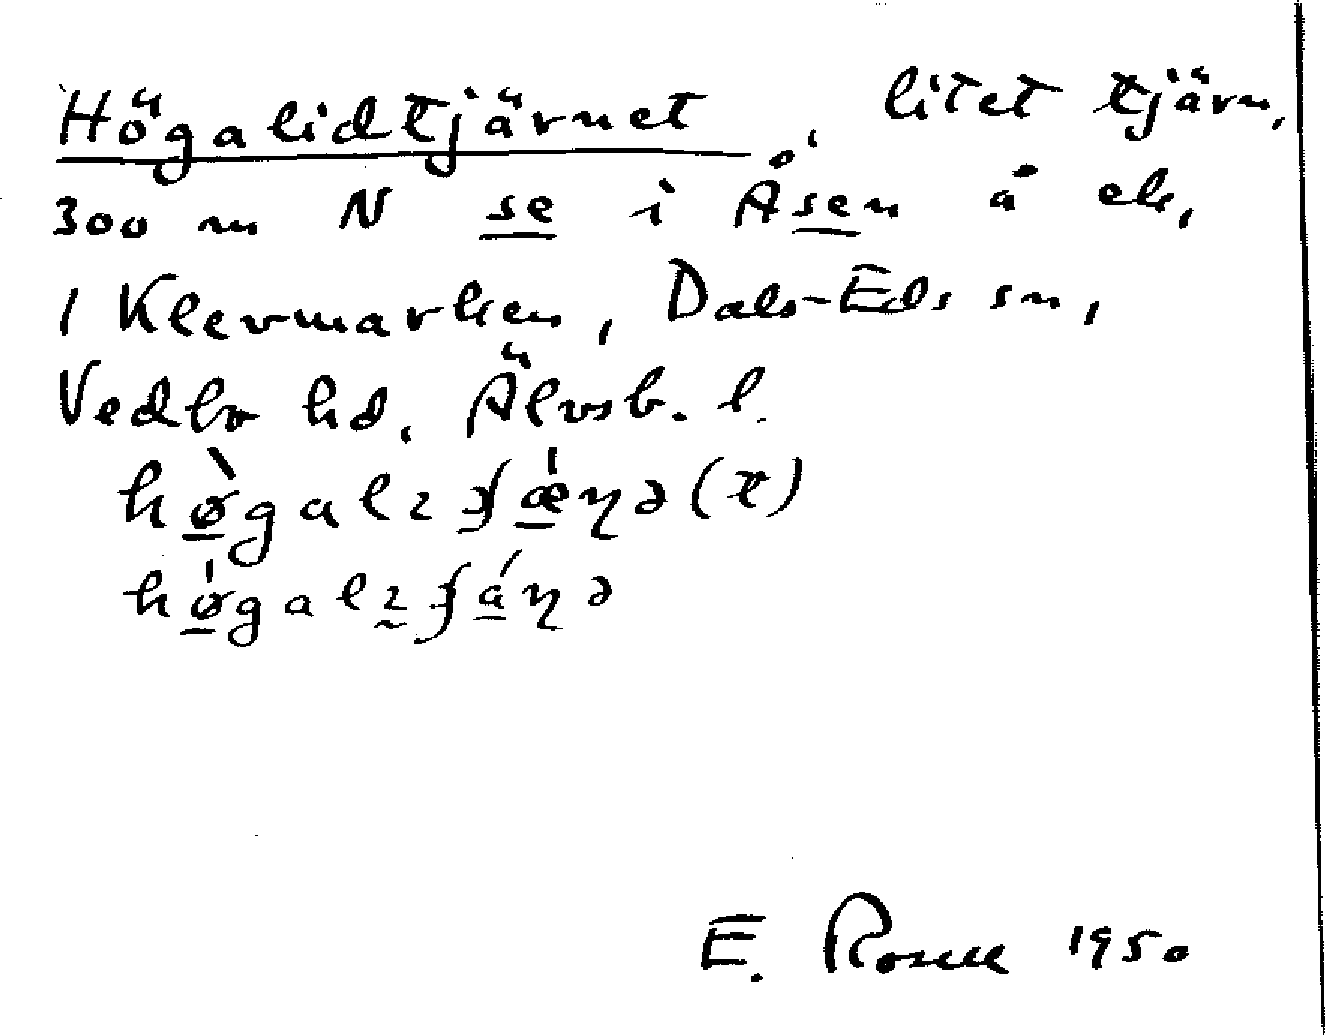 Högalidtjärnet, litet tjärn,
300 m N se i Åsen å ek.
1 Klevmarken, Dals-Eds sn,
Vedbo hd. Älvsb. l.
hø̀galɩʄǽɳə(t)
hǿgalɩʄáɳə
E. Rosell 1950